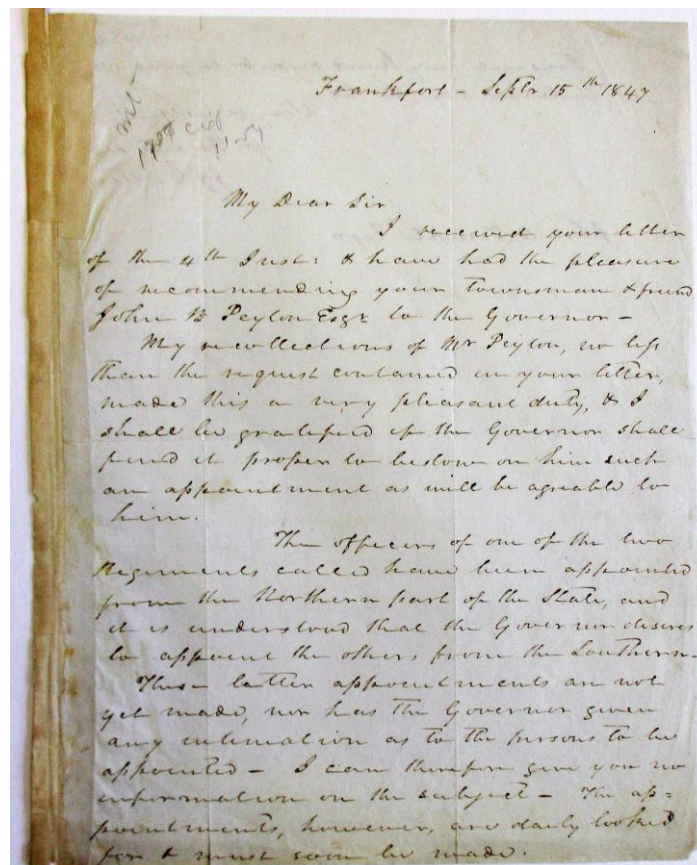 Frankfort - Septr 15th 1847
My Dear Sir
I received your letter
of the 4th Inst: & have had the pleasure
of recommending your townsman & friend
John B Peyton Esqr to the Governor -
My recollections of Mr Peyton, no less
than the request contained in your letter,
made this a very pleasant duty, & I
shall be gratified if the Governor shall
find it proper to bestow on him such
an appointment as will be agreable to
him.
The officers of one of the two
Regiments called have been appointed
from the Northern part of the State, and
it is understood that the Governor desires
to appoint the others from the Southern -
These latter appointments are not
yet made, nor has the Governor given
any intimation as to the persons to be
appointed - I can therefore give you no
information on the subject - The ap=
pointments, however, are daily looked
for & must soon be made.